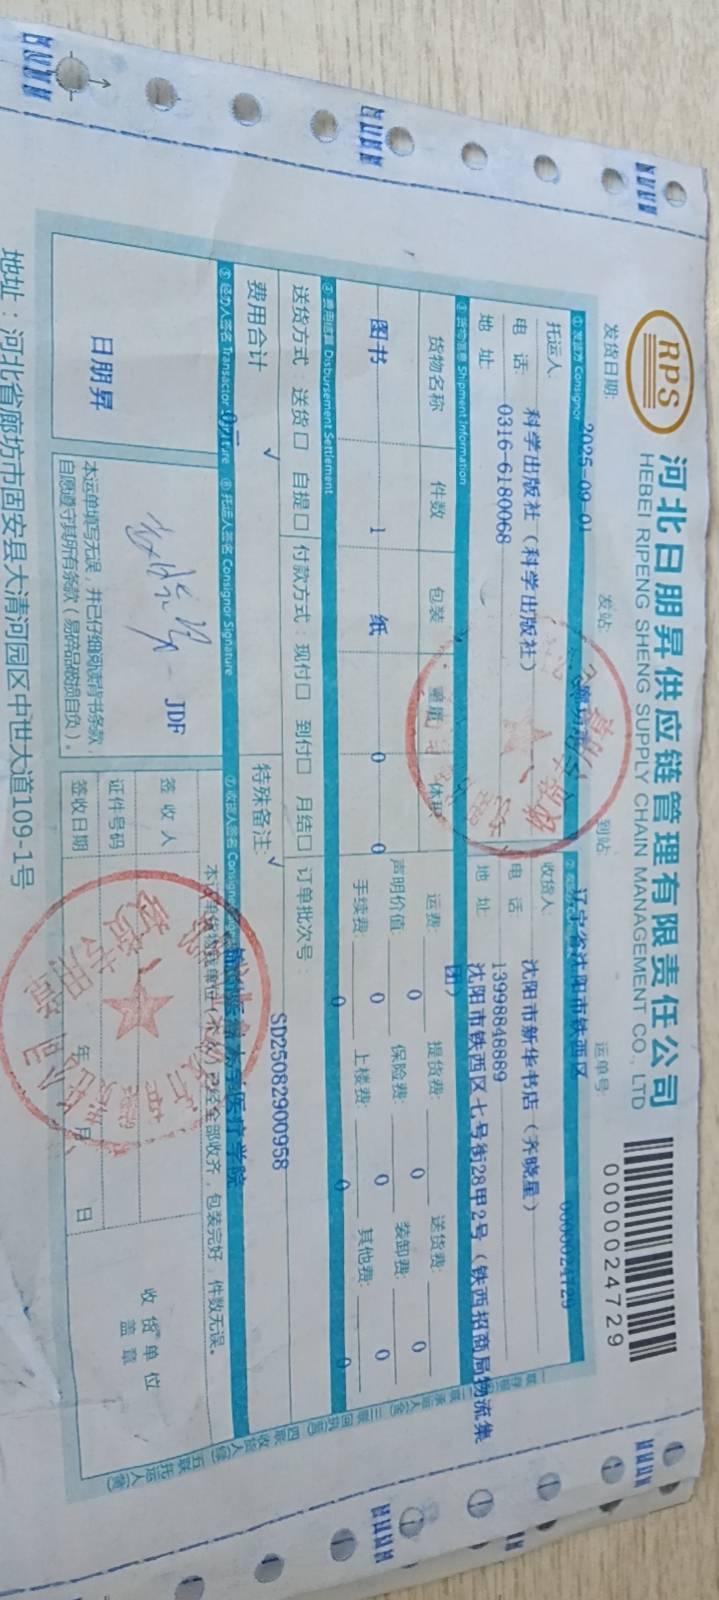 RPS
河北日朋昇供应链管理有限责任公司
HEBEI RIPENG SHENG SUPPLY CHAIN MANAGEMENT CO., LTD
0000024729
发货日期: 2025-09-01 发站: 到站: 辽宁省沈阳市铁西区 运单号 0000024729
① 发货方 Consignor
托运人: 科学出版社（科学出版社） 收货人: 沈阳市新华书店（齐晓星）
电 话: 0316-6180068 电 话: 13998848889
地 址: 地 址: 沈阳市铁西区七号街28甲2号（铁西招商局物流集团）
③ 货物信息 Shipment Information
货物名称 件数 包装 重量 体积 运费: 0 提货费: 0 送货费: 0
图书 1 纸 0 0 声明价值: 0 保险费: 0 装卸费: 0
手续费: 0 上楼费: 0 其他费: 0
④ 费用结算 Disbursement Settlement
送货方式: 送货□ 自提□ √ 付款方式: 现付□ 到付□ 月结□ √ 订单批次号: SD25082900958
费用合计 特殊备注:
⑤ 经办人签名 Transactor Signature ⑥ 托运人签名 Consignor Signature ⑦ 收货人签名
日朋昇
JDF
本运单填写无误，并已仔细阅读背书条款，
自愿遵守其所有条款（易碎品破损自负）。
已经全部收齐，包装完好，件数无误。
签 收 人
证件号码
签收日期 年 月 日
收货单位
盖 章
地址：河北省廊坊市固安县大清河园区中世大道109-1号